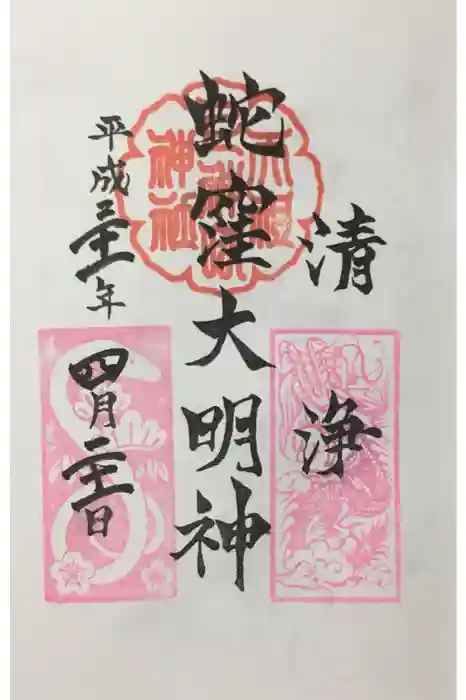 清浄
蛇窪大明神
平成三十一年
四月二十一日
神社